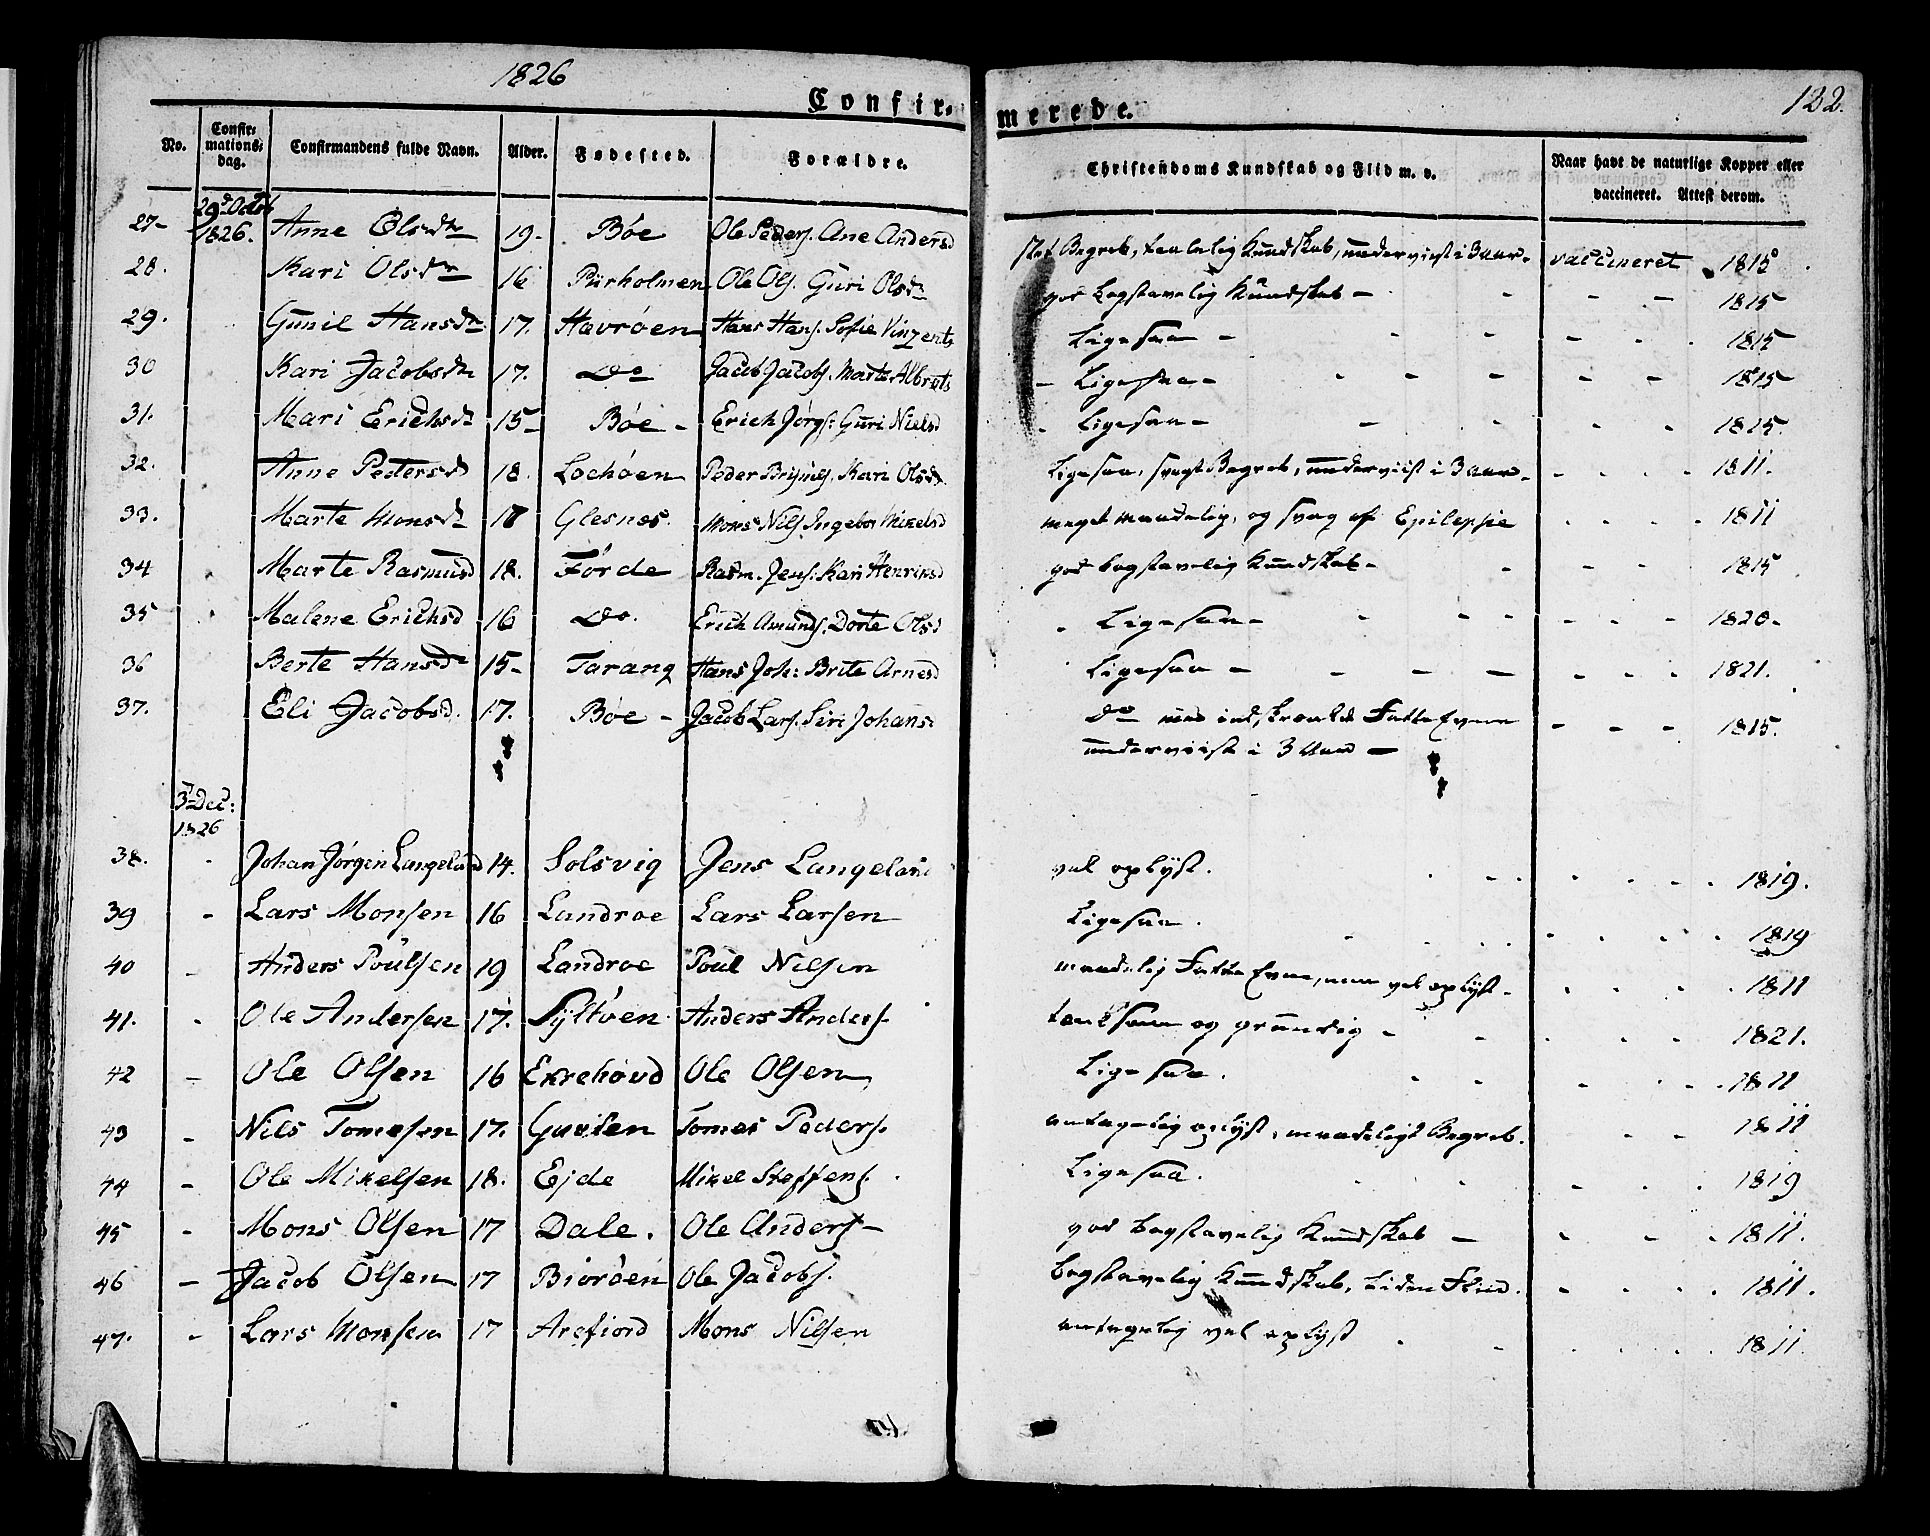 1826
122.
Confir-merede.
No. Confirmationsdag. Confirmandens fulde Navn. Alder. Fødested. Forældre. Christendoms Kundskab og Flid m. v. Naar havt de naturlige Kopper eller vaccineret. Attest derom.
29d Octob 1826.
27- Anne Olsdr 19- Bøe Ole Peders. Ane Andersd Begreb, taalelig Kundskab, underviist i 3 Aar- vaccineret 1815
28. Kari Olsdr 16 Pürholmen Ole Ols. Guri Olsd god bogstavelig Kundskab - 1815
29. Gunil Hansdr 17. Havrøen Hans Hans. Sofie Vinzents Ligesaa - 1815
30 Kari Jacobsdr 17. Do Jacob Jacobs. Marte Albrets - Ligesaa - 1815
31. Mari Erichsdr 15- Bøe - Erich Jørgs: Guri Nielsd Ligesaa - 1815
32. Anne Pedersd 18. Lochøen Peder Brynels. Kari Olsd. Ligesaa, svagt Begreb, underviist i 3 Aar- 1811.
33. Marte Monsdr 17 Glesnes. Mons Nils. Ingebor Mikelsd meget maadelig, og svag af Epilepsie 1811
34 Marte Rasmusd 18. Førde Rasm. Jens: Kari Henriksd god bogstavelig Kundskab - 1815
35 Malene Erichsd 16 Do. Erich Amunds. Dorte Olsd Ligesaa - 1820-
36 Berte Hansdr 15- Tarang Hans Joh: Brite Arnesd Ligesaa - 1821.
37. Eli Jacobsd. 17. Bøe - Jacob Lars. Siri Johans: do med indskrænket Fatte Evne 1815.
underviist i 3 Aar -
3d Dec: 1826
38. Johan Jørgen Langeland 14. Solsvig Jens Langeland vel oplyst. 1819.
39 - Lars Monsen 16 Landroe Lars Larsen Ligesaa. 1819
40 - Anders Poulsen 19 Landroe Poul Nilsen maadelig Fatte Evne, men vel oplyst - 1811
41. - Ole Andersen 17. Syltøen Anders Anders. tænksom og grundig - 1821.
42 - Ole Olsen 16 Ekrehovd Ole Olsen Ligesaa. 1811
43 - Nils Tomesen 17. Gavlen Tomes Peders. antagelig oplyst, maadeligt Begreb. 1811
44 - Ole Mikelsen 18. Ejde Mikel Steffens. Ligesaa. 1819
45 - Mons Olsen 17 Dale. Ole Anders - god bogstavelig Kundskab - 1811.
46 - Jacob Olsen 17 Biorøen Ole Jacobs. bogstavelig Kundskab, Liden Flid. 1811.
47. - Lars Monsen 17 Arefiord Mons Nilsen antagelig vel oplyst 1811.